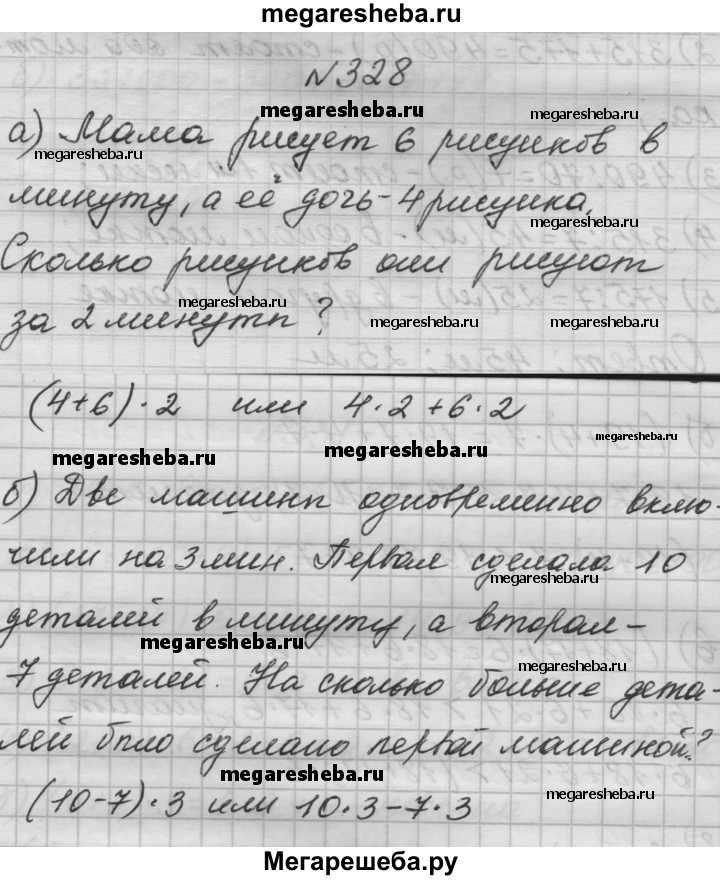 megaresheba.ru
№328
megaresheba.ru
megaresheba.ru
а) Мама рисует 6 рисунков в
megaresheba.ru
минуту, а её дочь - 4 рисунка.
megaresheba.ru
Сколько рисунков они рисуют
megaresheba.ru
за 2 минуты?
megaresheba.ru megaresheba.ru
(4+6)·2 или 4·2+6·2
megaresheba.ru
megaresheba.ru
megaresheba.ru
б) Две машины одновременно вклю-
чили на 3 мин. Первая сделала 10
megaresheba.ru
деталей в минуту, а вторая -
megaresheba.ru
megaresheba.ru
7 деталей. На сколько больше дета-
лей было сделано первой машиной?
megaresheba.ru
megaresheba.ru
(10-7)·3 или 10·3-7·3
Мегарешеба.ру